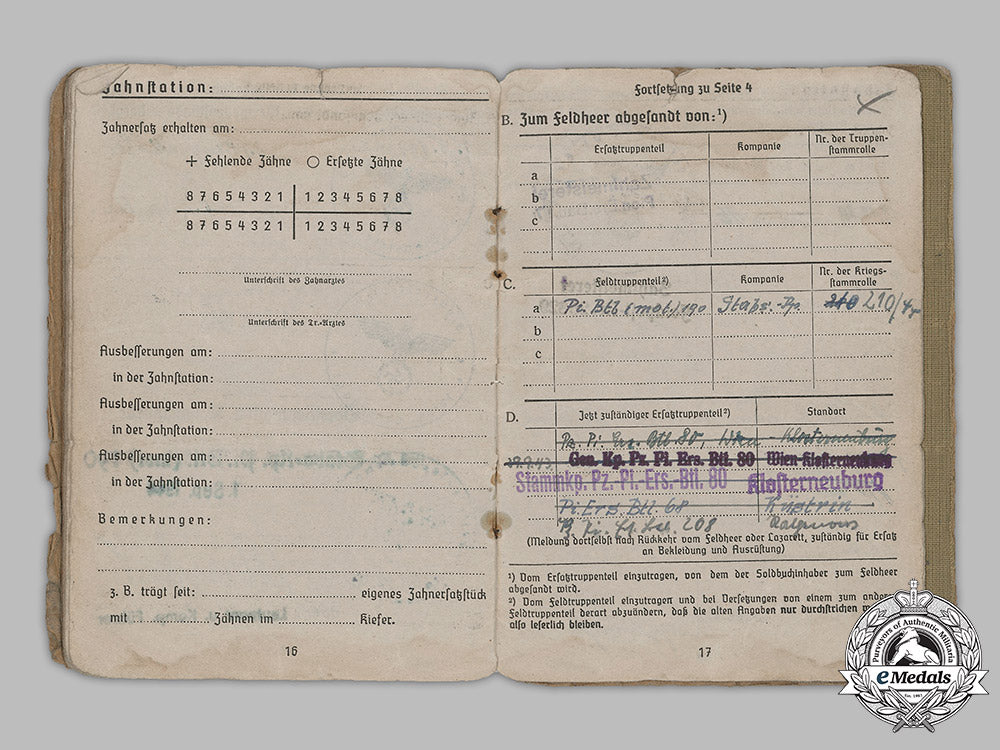 Zahnstation:
Zahnersatz erhalten am:
+ Fehlende Zähne ○ Ersetzte Zähne
8 7 6 5 4 3 2 1 | 1 2 3 4 5 6 7 8
8 7 6 5 4 3 2 1 | 1 2 3 4 5 6 7 8
Unterschrift des Zahnarztes
Unterschrift des Tr.-Arztes
Ausbesserungen am:
in der Zahnstation:
Ausbesserungen am:
in der Zahnstation:
Ausbesserungen am:
in der Zahnstation:
Bemerkungen:
z. B. trägt seit: eigenes Zahnersatzstück
mit Zähnen im Kiefer.
16
Fortsetzung zu Seite 4
B. Zum Feldheer abgesandt von:¹)
Ersatztruppenteil Kompanie Nr. der Truppen-
stammrolle
a
b
c
C. Feldtruppenteil²) Kompanie Nr. der Kriegs-
stammrolle
a Pi. Btl. (mot.) 190 Stabs.-Kp. 210
b
c
D. Jetzt zuständiger Ersatztruppenteil²) Standort
Pz. Pi. Ers. Btl. 80, Wien - Klosterneuburg
Gen. Kp. Pz. Pi. Ers. Btl. 80 Wien-Klosterneuburg
Stammkp. Pz. Pi.-Ers.-Btl. 80 Klosterneuburg
Pi Ers. Btl. 68 Küstrin
208
(Meldung dortselbst nach Rückkehr vom Feldheer oder Lazarett, zuständig für Ersatz
an Bekleidung und Ausrüstung)
¹) Vom Ersatztruppenteil einzutragen, von dem der Soldbuchinhaber zum Feldheer
abgesandt wird.
²) Vom Feldtruppenteil einzutragen und bei Versetzungen von einem zum anderen
Feldtruppenteil derart abzuändern, daß die alten Angaben nur durchstrichen
also leserlich bleiben.
17
Purveyors of Authentic Militaria
eMedals
Est. 1967